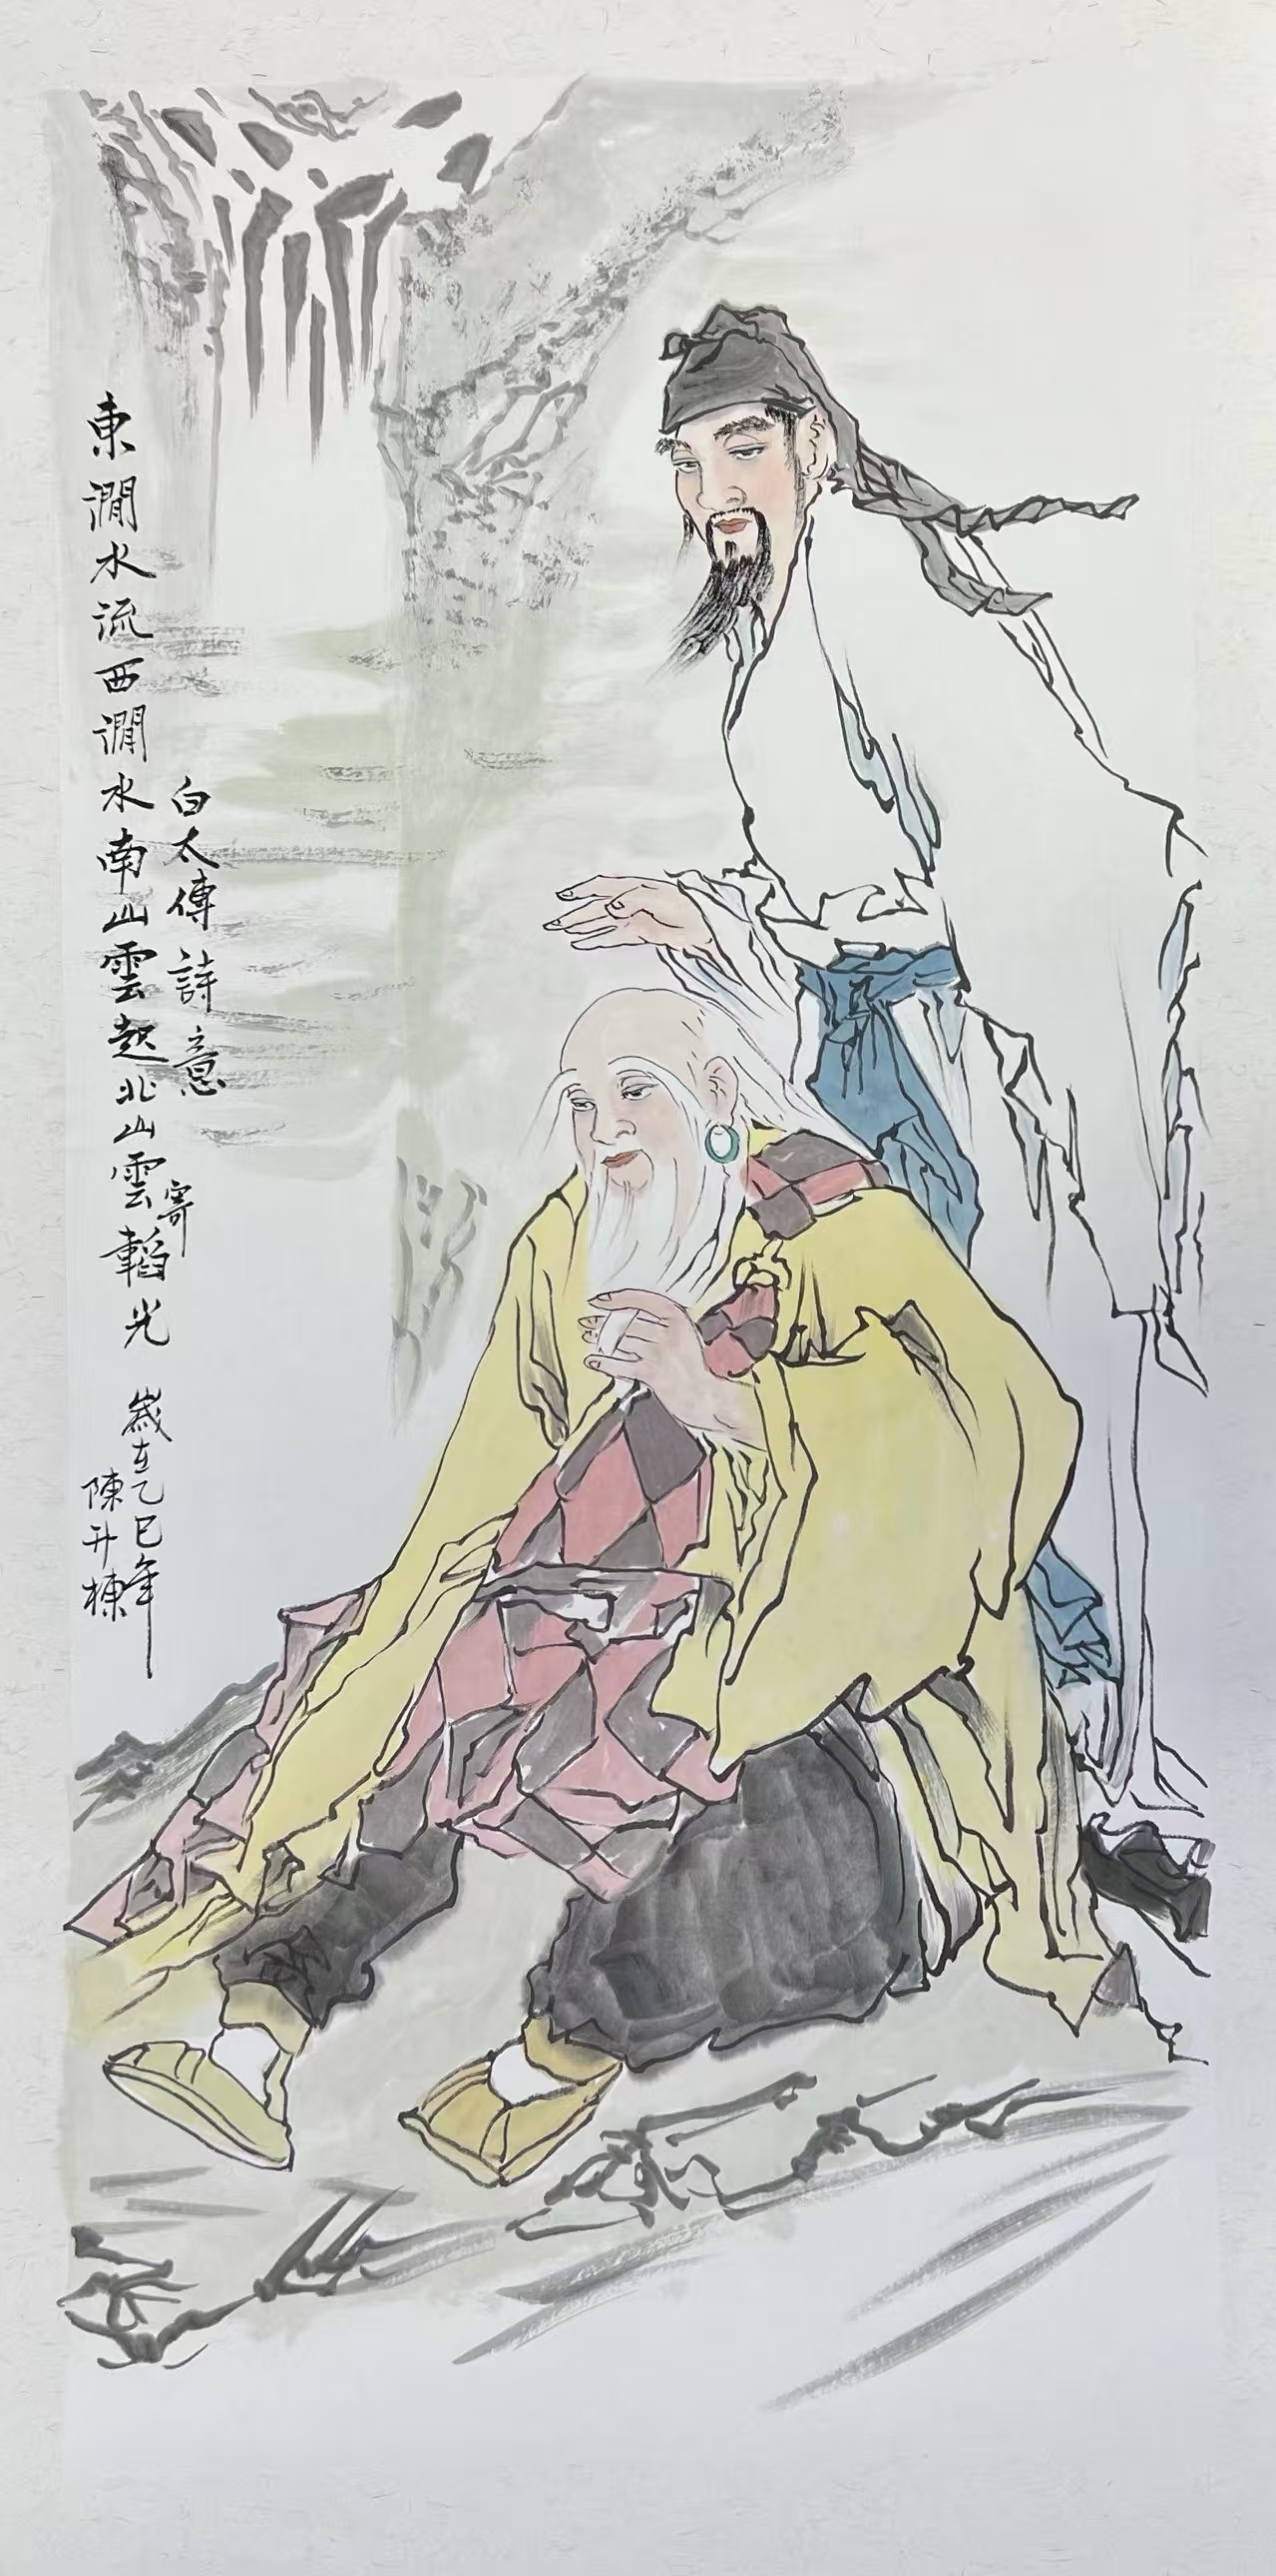 東澗水流西澗水南山雲起北山雲寄韜光
白太傅詩意
歲在乙巳年
陳升棟